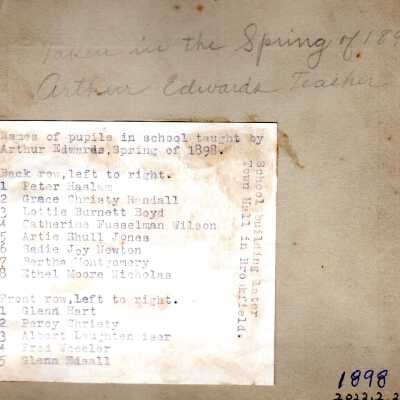 Taken in the Spring of 189
Arthur Edwards Teacher
Names of pupils in school taught by
Arthur Edwards,Spring of 1898.
Back row,left to right.
1 Peter Haslam
2 Grace Christy Randall
3 Lottie Burnett Boyd
4 Catherine Fusselman Wilson
5 Artie Shull Jones
6 Sadie Joy Newton
7 Bertha Montgomery
8 Ethel Moore Nicholas
Front row,Left to right.
1 Glenn Hart
2 Percy Christy
3 Albert
4 Fred Wheeler
5 Glenn Edsall
School building later
Town Hall in Brookfield.
1898
2022.2.2